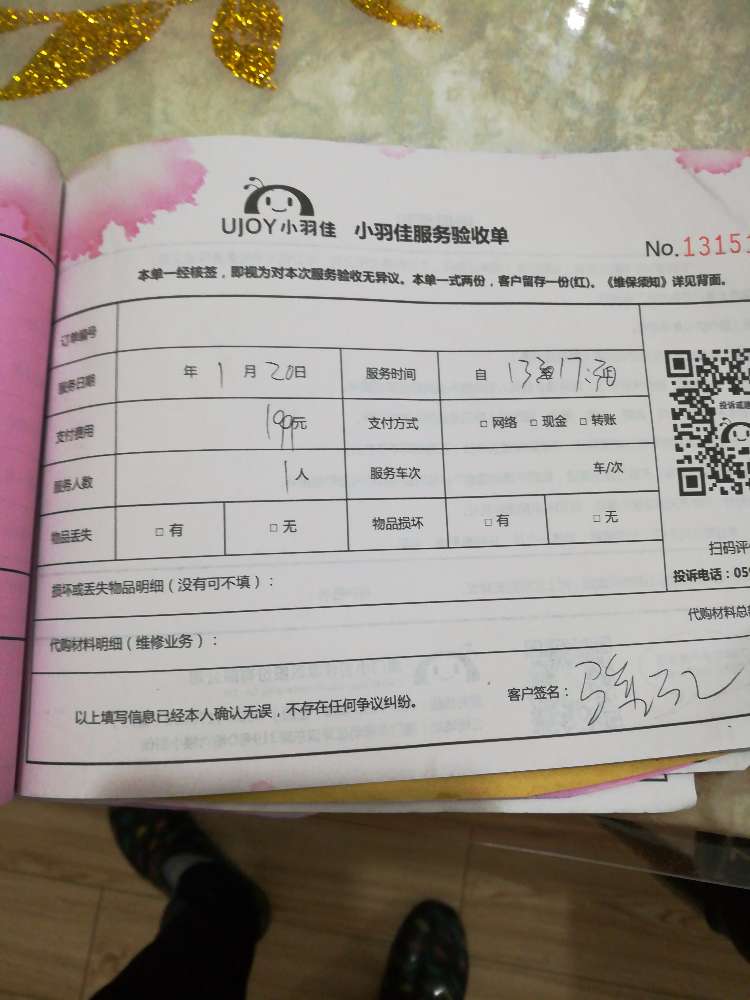 UJOY小羽佳 小羽佳服务验收单
No.13151
本单一经核签，即视为对本次服务验收无异议。本单一式两份，客户留存一份(红)。《维保须知》详见背面。
订单编号
服务日期 年 1 月 20日 服务时间 自 13 至 17:30
支付费用 199元 支付方式 □ 网络 □ 现金 □ 转账
服务人数 1人 服务车次 车/次
物品丢失 □ 有 □ 无 物品损坏 □ 有 □ 无
投诉或建
扫码评
投诉电话：059
损坏或丢失物品明细（没有可不填）：
代购材料明细（维修业务）： 代购材料总
以上填写信息已经本人确认无误，不存在任何争议纠纷。 客户签名：